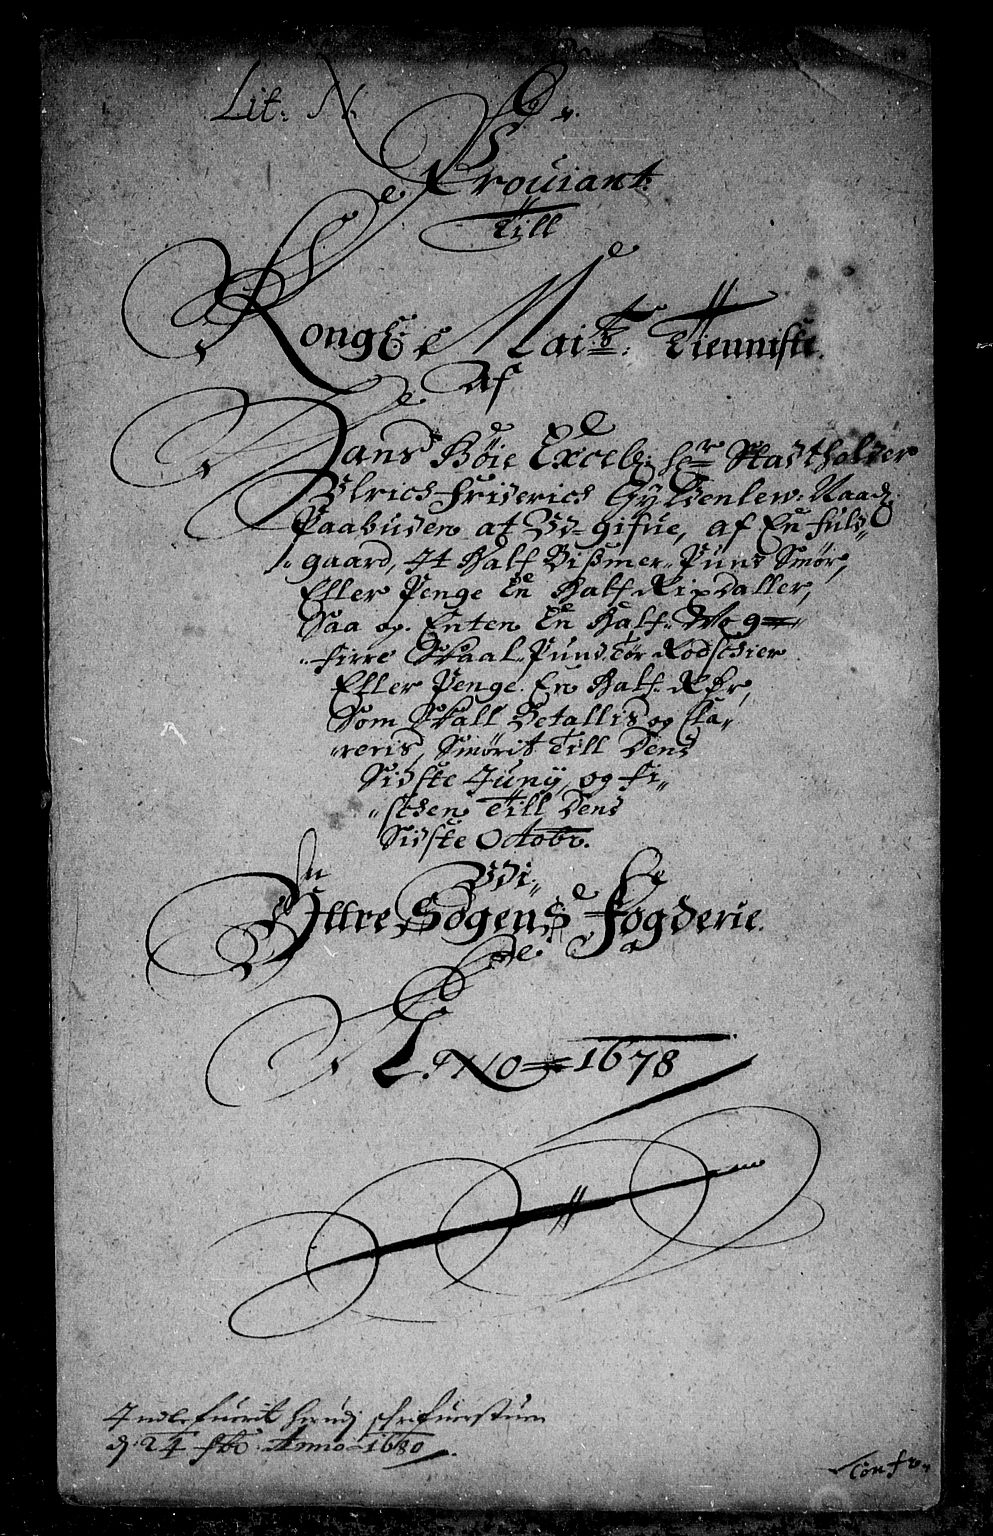 Lit: N.
Prouiant
Till
Kongl: Maitt: Tienniste.
Af
Hans Høie Excell: her Stadtholder
Ulrich Friderich Gyldenlew. Naad.
Paabuden at Ud-gifue, af En fuld-
gaard, It Halft Bismer-Pund Smør,
Eller Penge En Halft Rixdaller,
Saa og. Enten En Half. Wog
firre Skaal-Pund. Tør Rodschier
Eller Penge. En Half. Rdr,
Som Skall Betallis og kla-
reris, Smørit Till Dend
Sidste Juny, og fi-
schen Till Dend
Sidste Octobr.
Udi
Yttre Sogens Fogderie.
Anno 1678
d. 24 Anno 1680